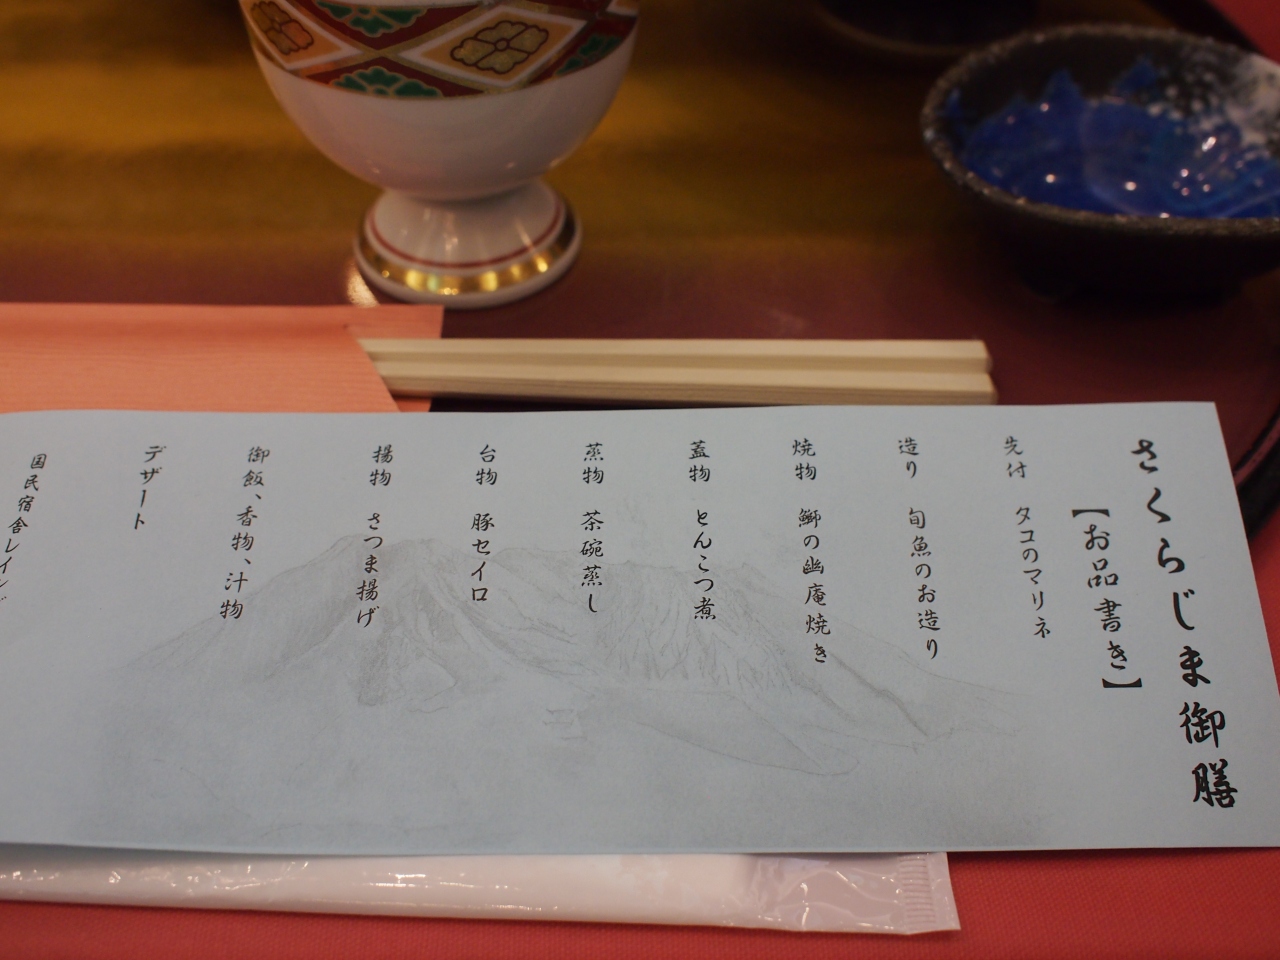 さくらじま御膳
【お品書き】
先付　タコのマリネ
造り　旬魚のお造り
焼物　鰤の幽庵焼き
蓋物　とんこつ煮
蒸物　茶碗蒸し
台物　豚セイロ
揚物　さつま揚げ
御飯、香物、汁物
デザート
国民宿舎レインボ